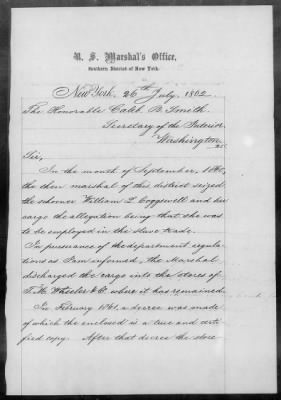 U. S. Marshal's Office,
Southern District of New York.
New York, 26th July, 1862.
The Honorable Caleb B. Smith.
Secretary of the Interior
Washington
Sir,
In the month of September, 1860,
the then marshal of this district seized
the schooner William L. Coggswell and her
cargo the allegation being that she was
to be employed in the slave trade.
In pursuance of the department regula
tions as I am informed, the Marshal
discharged the cargo into the stores of
T. H. Wheeler & Co. where it has remained.
In February 1861, a decree was made
of which the enclosed is a true and certi
fied copy. After that decree the store